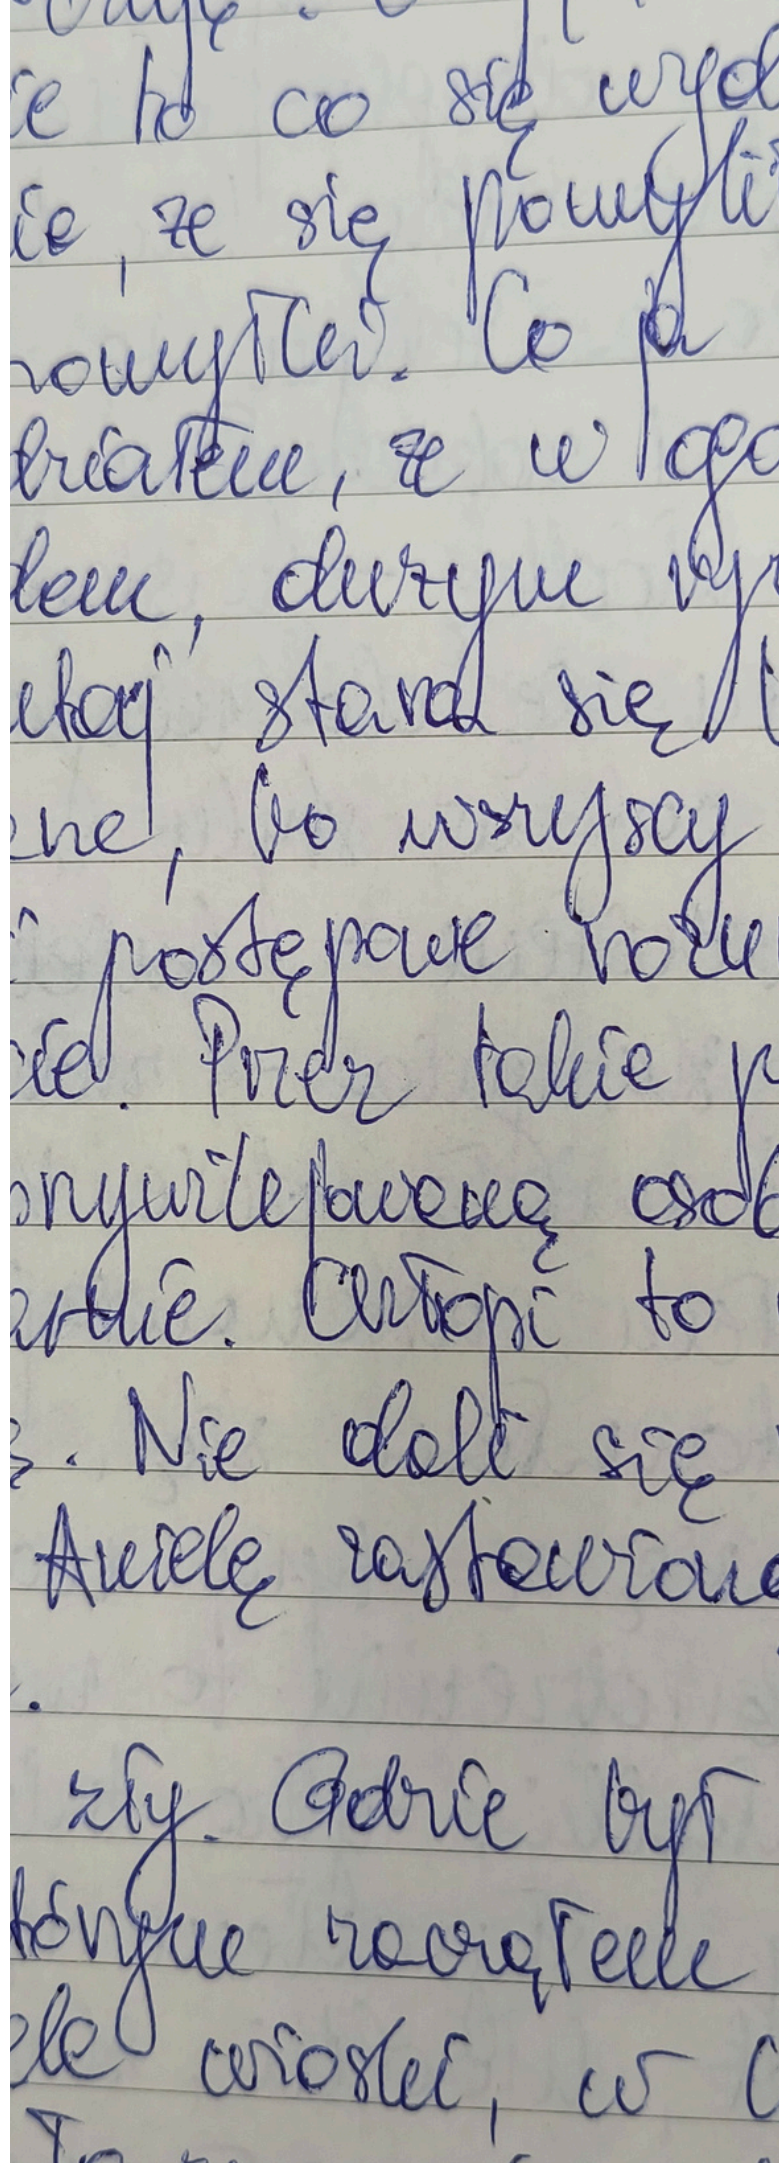 ie to co się wyd
ie, że się pomyli
pomyłki. Co ja
działem, że w ogó
dem, dużym wy
utaj stara się
ene, bo wszyscy
i postępowe rozu
cie. Przez takie p
przywilejowaną osob
armie. Chłopi to
. Nie dali się
Anielę zastawiono
.
zły. Gdzie był
którym zacząłem
ele wioski, w
To